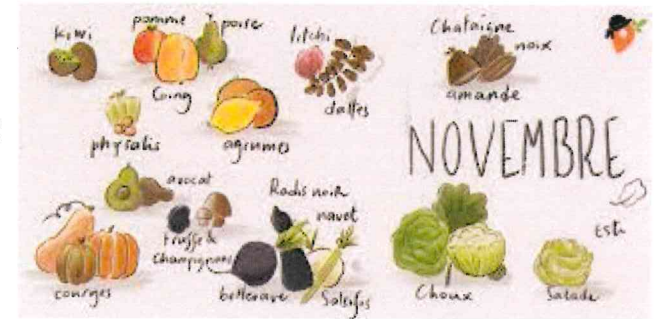 kiwi
pomme
poire
Coing
litchi
dattes
Chataigne
noix
amande
physalis
agrumes
NOVEMBRE
avocat
truffe &
Champignons
Radis noir
navet
courges
betterave
Salsifis
Choux
Salade